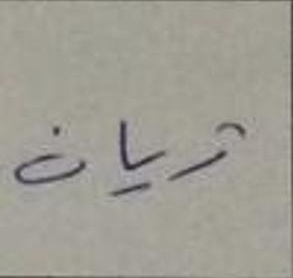 تريان